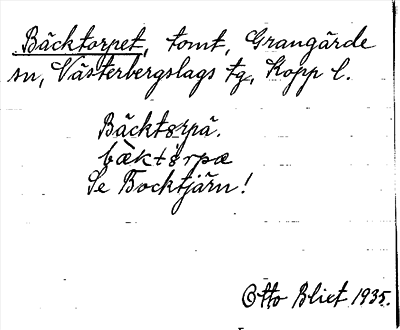 Bäcktorpet, tomt, Grangärde
sn, Västerbergslags tg, Kopp l.
Bäcktorpä.
bäktörpæ
Se Bocktjärn!
Otto Blixt 1935.